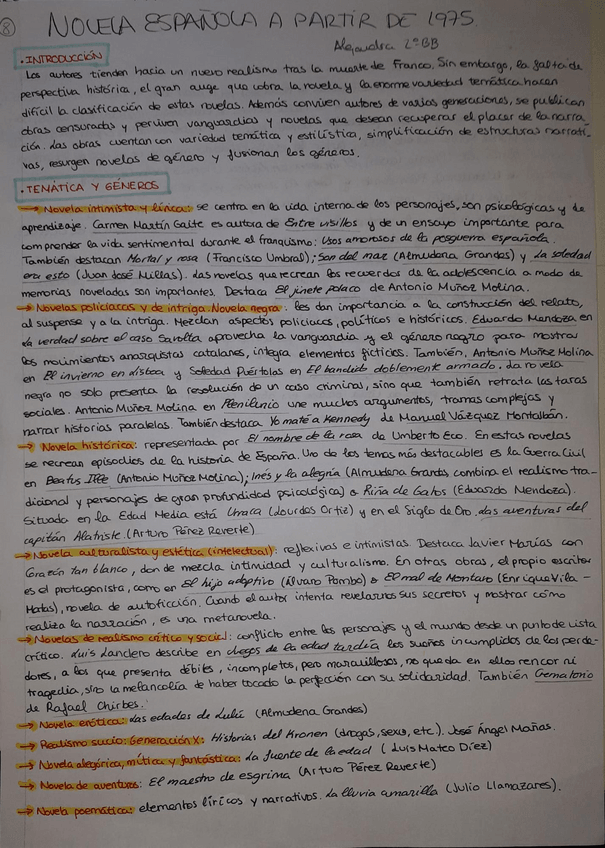 8
NOVELA ESPAÑOLA A PARTIR DE 1975
Alejandra 2º BB
· INTRODUCCIÓN
Los autores tienden hacia un nuevo realismo tras la muerte de Franco. Sin embargo, la falta de
perspectiva histórica, el gran auge que cobra la novela y la enorme variedad temática hacen
difícil la clasificación de estas novelas. Además conviven autores de varias generaciones, se publican
obras censuradas y perviven vanguardias y novelas que desean recuperar el placer de la narra-
ción. Las obras cuentan con variedad temática y estilística, simplificación de estructuras narrati-
vas, resurgen novelas de género y fusionan los géneros.
· TEMÁTICA Y GÉNEROS
→ Novela intimista y lírica: se centra en la vida interna de los personajes, son psicológicas y de
aprendizaje. Carmen Martín Gaite es autora de Entre visillos y de un ensayo importante para
comprender la vida sentimental durante el franquismo: Usos amorosos de la posguerra española.
También destacan Mortal y rosa (Francisco Umbral); Son del mar (Almudena Grandes) y La soledad
era esto (Juan José Millas). Las novelas que recrean los recuerdos de la adolescencia a modo de
memorias noveladas son importantes. Destaca El jinete polaco de Antonio Muñoz Molina.
→ Novelas policíacas y de intriga. Novela negra: les dan importancia a la construcción del relato,
al suspense y a la intriga. Mezclan aspectos policiacos, políticos e históricos. Eduardo Mendoza en
La verdad sobre el caso Savolta aprovecha la vanguardia y el género negro para mostrar
los movimientos anarquistas catalanes, integra elementos ficticios. También, Antonio Muñoz Molina
en El invierno en Lisboa y Soledad Puértolas en El bandido doblemente armado. La novela
negra no solo presenta la resolución de un caso criminal, sino que también retrata las taras
sociales. Antonio Muñoz Molina en Plenilunio une muchos argumentos, tramas complejas y
narrar historias paralelas. También destaca Yo maté a Kennedy de Manuel Vázquez Montalbán.
→ Novela histórica: representada por El nombre de la rosa de Umberto Eco. En estas novelas
se recrean episodios de la historia de España. Uno de los temas más destacables es la Guerra Civil
en Beatus Ille (Antonio Muñoz Molina); Inés y la alegría (Almudena Grandes combina el realismo tra-
dicional y personajes de gran profundidad psicológica) o Riña de Gatos (Eduardo Mendoza).
Situada en la Edad Media está Urraca (Lourdes Ortiz) y en el Siglo de Oro. Las aventuras del
capitán Alatriste (Arturo Pérez Reverte)
→ Novela culturalista y estética (intelectual): reflexivas e intimistas. Destaca Javier Marías con
Corazón tan blanco, don de mezcla intimidad y culturalismo. En otras obras, el propio escritor
es el protagonista, como en El hijo adoptivo (Álvaro Pombo) o El mal de Montano (Enrique Vila-
Matas), novela de autoficción. Cuando el autor intenta revelarnos sus secretos y mostrar cómo
realiza la narración, es una metanovela.
→ Novelas de realismo crítico y social: conflicto entre los personajes y el mundo desde un punto de vista
crítico. Luis Landero describe en Juegos de la edad tardía los sueños incumplidos de los perde-
dores, a los que presenta débiles, incompletos, pero maravillosos, no queda en ellos rencor ni
tragedia, sino la melancolía de haber tocado la perfección con su solidaridad. También Crematorio
de Rafael Chirbes.
→ Novela erótica: Las edades de Lulú (Almudena Grandes)
→ Realismo sucio: Generación X: Historias del Kronen (drogas, sexo, etc.). José Ángel Mañas.
→ Novela alegórica, mítica y fantástica: La fuente de la edad (Luis Mateo Díez)
→ Novela de aventuras: El maestro de esgrima (Arturo Pérez Reverte)
→ Novela poemática: elementos líricos y narrativos. La lluvia amarilla (Julio Llamazares).